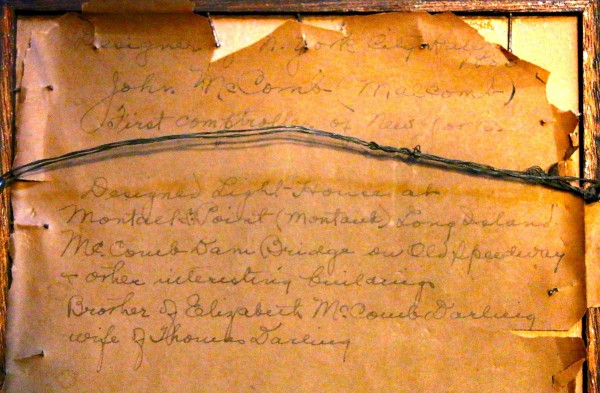 Designer of N. York City Hall
John McComb (Malcomb)
(First comptroller of New York.
Designed Light-House at
Montack Point (Montauk) Long Island
McComb Dam Bridge on Old Speedway
& other interesting buildings
Brother of Elizabeth McComb Darling
wife of Thomas Darling